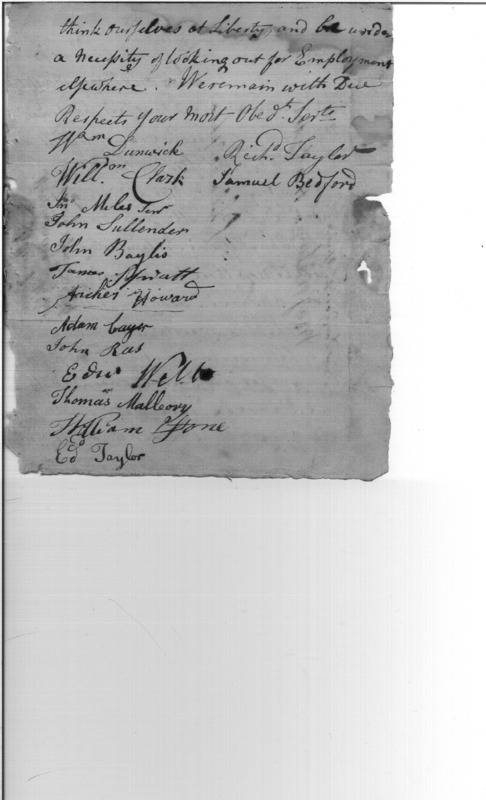 think ourselves at Liberty, and be under
a necessity of looking out for Employment
elsewhere. We remain with Due
Respects Your most Obedt. Servts.
Wm Dunwick Richd. Taylor
Willm Clark Samuel Bedford
Jno Miles Senr
John Sullender
John Baylis
James Wyatt
Archer Howard
Adam
John Rees
Edwd Well
Thomas Malleory
William Stone
Ed Taylor